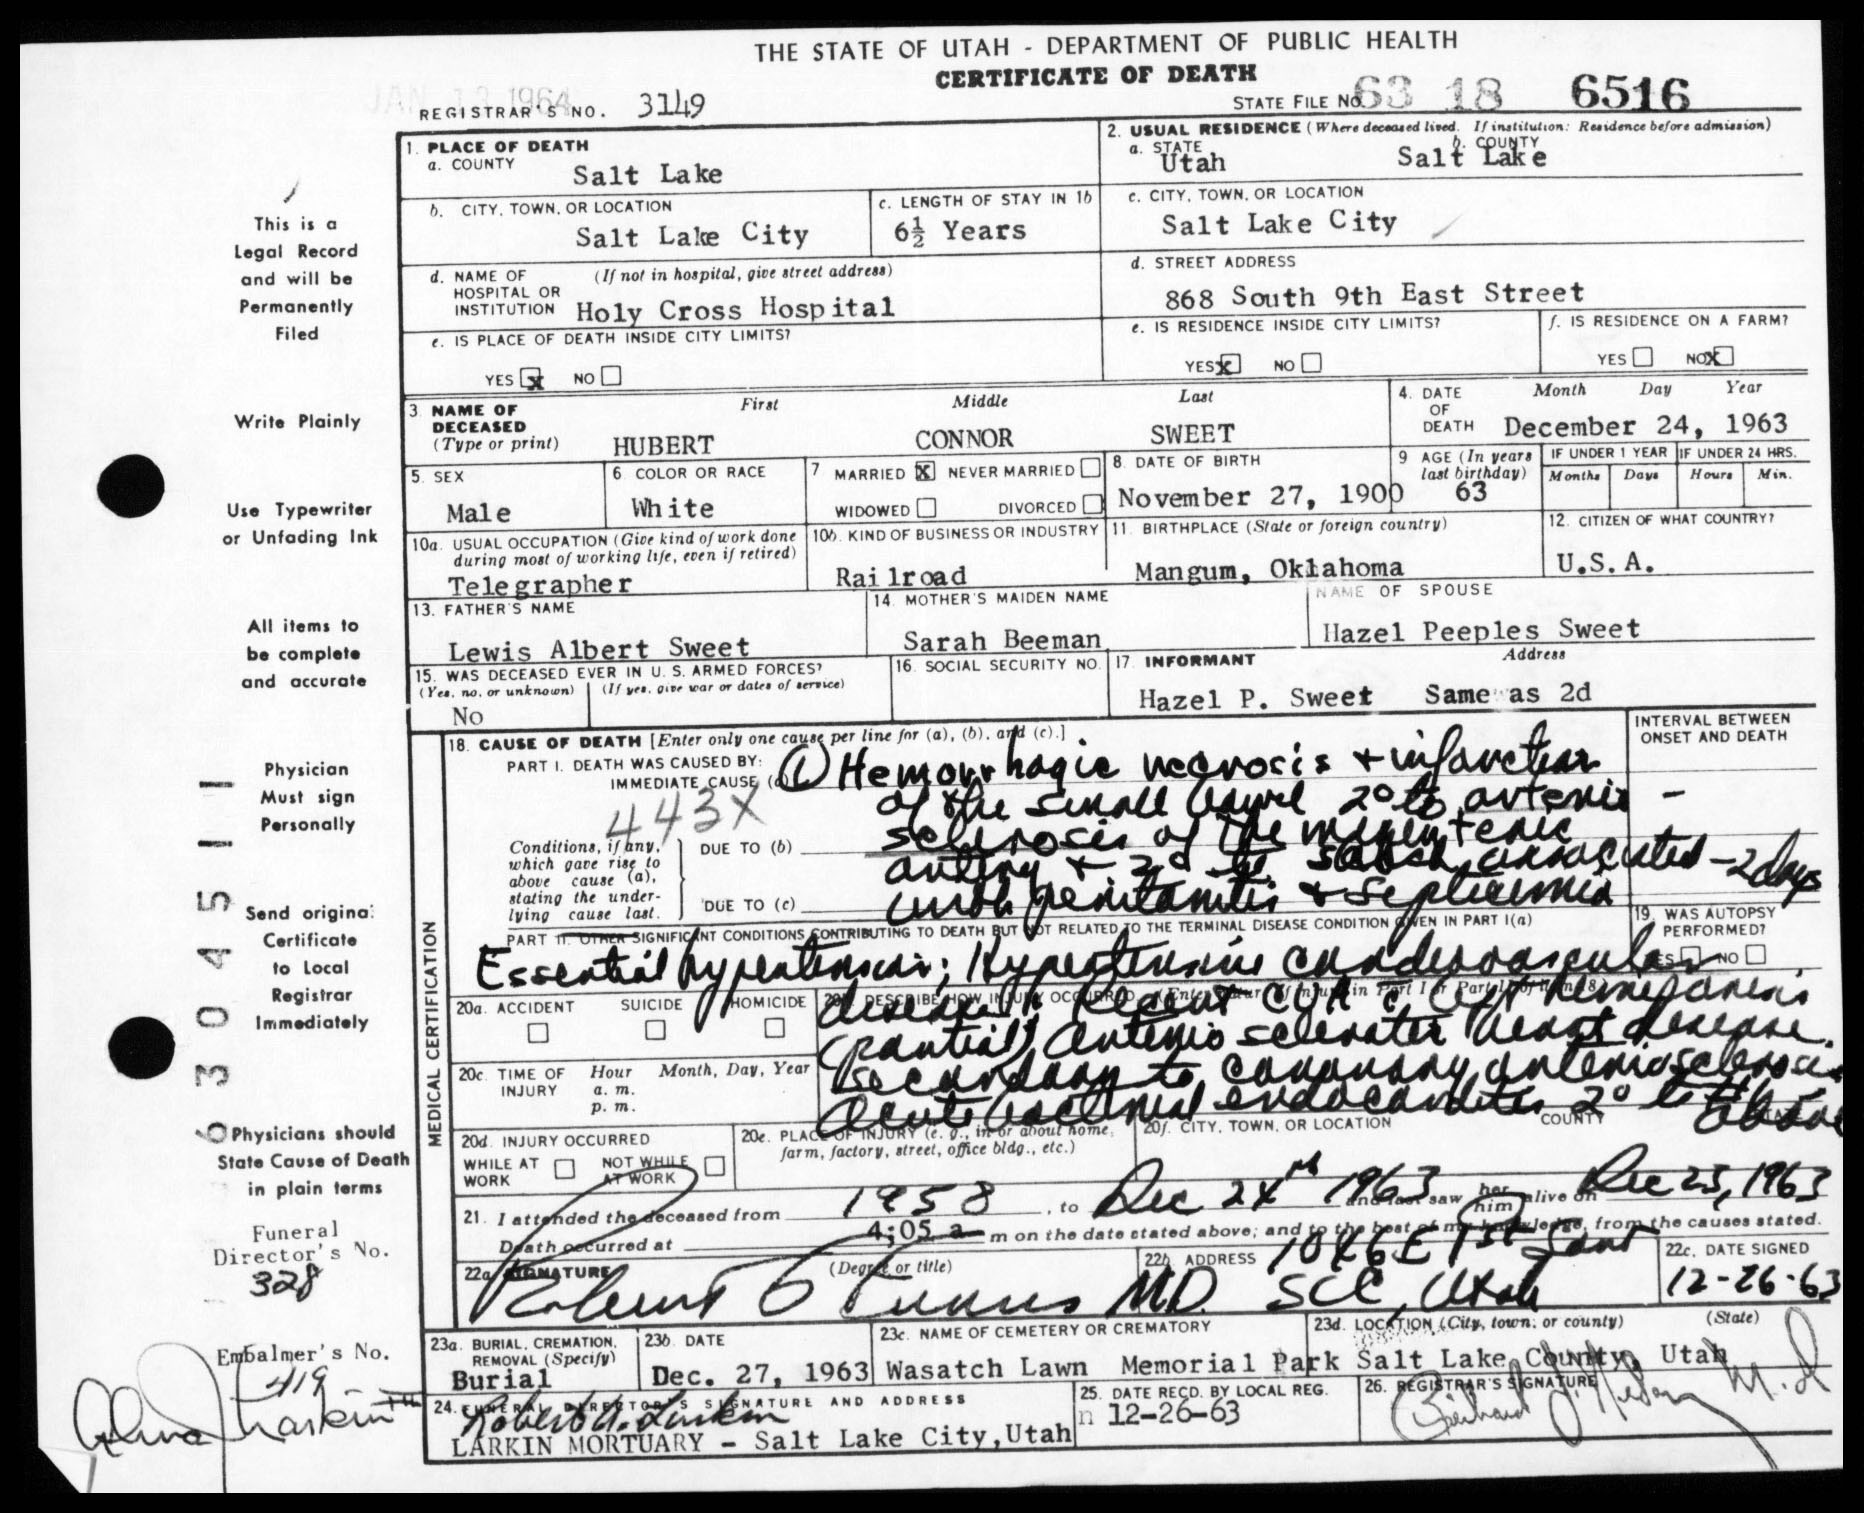 THE STATE OF UTAH - DEPARTMENT OF PUBLIC HEALTH
CERTIFICATE OF DEATH
JAN 13 1964
REGISTRAR'S NO. 3149
STATE FILE NO. 63 18 6516
1. PLACE OF DEATH
a. COUNTY
Salt Lake
2. USUAL RESIDENCE (Where deceased lived. If institution: Residence before admission)
a. STATE
Utah
b. COUNTY
Salt Lake
b. CITY, TOWN, OR LOCATION
Salt Lake City
c. LENGTH OF STAY IN 1b
6½ Years
c. CITY, TOWN, OR LOCATION
Salt Lake City
d. NAME OF (If not in hospital, give street address)
HOSPITAL OR
INSTITUTION Holy Cross Hospital
d. STREET ADDRESS
868 South 9th East Street
e. IS PLACE OF DEATH INSIDE CITY LIMITS?
YES X NO
e. IS RESIDENCE INSIDE CITY LIMITS?
YES X NO
f. IS RESIDENCE ON A FARM?
YES NO X
3. NAME OF
DECEASED
(Type or print)
First Middle Last
HUBERT CONNOR SWEET
4. DATE
OF
DEATH
Month Day Year
December 24, 1963
5. SEX
Male
6. COLOR OR RACE
White
7. MARRIED X NEVER MARRIED
WIDOWED DIVORCED
8. DATE OF BIRTH
November 27, 1900
9. AGE (In years
last birthday)
63
IF UNDER 1 YEAR
Months Days
IF UNDER 24 HRS.
Hours Min.
10a. USUAL OCCUPATION (Give kind of work done
during most of working life, even if retired)
Telegrapher
10b. KIND OF BUSINESS OR INDUSTRY
Railroad
11. BIRTHPLACE (State or foreign country)
Mangum, Oklahoma
12. CITIZEN OF WHAT COUNTRY?
U.S.A.
13. FATHER'S NAME
Lewis Albert Sweet
14. MOTHER'S MAIDEN NAME
Sarah Beeman
NAME OF SPOUSE
Hazel Peeples Sweet
15. WAS DECEASED EVER IN U. S. ARMED FORCES?
(Yes, no, or unknown) (If yes, give war or dates of service)
No
16. SOCIAL SECURITY NO.
17. INFORMANT Address
Hazel P. Sweet Same as 2d
MEDICAL CERTIFICATION
18. CAUSE OF DEATH [Enter only one cause per line for (a), (b), and (c).]
INTERVAL BETWEEN
ONSET AND DEATH
PART I. DEATH WAS CAUSED BY:
IMMEDIATE CAUSE (a)
443X
(1) Hemorrhagic necrosis + infarction
of the small bowel 2° to arterio -
sclerosis of the mesenteric
artery + 2d to shock associated - 2 days
with peritonitis + septicemia
Conditions, if any,
which gave rise to
above cause (a),
stating the under-
lying cause last.
DUE TO (b)
DUE TO (c)
PART II. OTHER SIGNIFICANT CONDITIONS CONTRIBUTING TO DEATH BUT NOT RELATED TO THE TERMINAL DISEASE CONDITION GIVEN IN PART I(a)
19. WAS AUTOPSY
PERFORMED?
YES NO
Essential hypertension; Hypertensive cardiovascular
disease; Recent CVA c left hemiparesis
(partial) arterio sclerotic heart disease
secondary to coronary arteriosclerosis
Acute bacterial endocarditis 2° to the above
20a. ACCIDENT SUICIDE HOMICIDE
20b. DESCRIBE HOW INJURY OCCURRED. (Enter nature of injury in Part I or Part II of item 18.)
20c. TIME OF
INJURY
Hour Month, Day, Year
a. m.
p. m.
20d. INJURY OCCURRED
WHILE AT
WORK
NOT WHILE
AT WORK
20e. PLACE OF INJURY (e. g., in or about home,
farm, factory, street, office bldg., etc.)
20f. CITY, TOWN, OR LOCATION COUNTY STATE
21. I attended the deceased from 1958, to Dec 24th 1963 and last saw her him alive on Dec 23, 1963
Death occurred at 4;05 a m on the date stated above; and to the best of my knowledge, from the causes stated.
22a. SIGNATURE (Degree or title)
MD.
22b. ADDRESS
1046 E 1st South
SLC, Utah
22c. DATE SIGNED
12-26-63
23a. BURIAL, CREMATION,
REMOVAL (Specify)
Burial
23b. DATE
Dec. 27, 1963
23c. NAME OF CEMETERY OR CREMATORY
Wasatch Lawn Memorial Park
23d. LOCATION (City, town, or county) (State)
Salt Lake County, Utah
24. FUNERAL DIRECTOR'S SIGNATURE AND ADDRESS
Robert A. Larkin
LARKIN MORTUARY - Salt Lake City, Utah
25. DATE RECD. BY LOCAL REG.
12-26-63
26. REGISTRAR'S SIGNATURE
M.D
This is a
Legal Record
and will be
Permanently
Filed
Write Plainly
Use Typewriter
or Unfading Ink
All items to
be complete
and accurate
Physician
Must sign
Personally
Send original
Certificate
to Local
Registrar
Immediately
Physicians should
State Cause of Death
in plain terms
Funeral
Director's No.
328
Embalmer's No.
419
Larkin
6304511